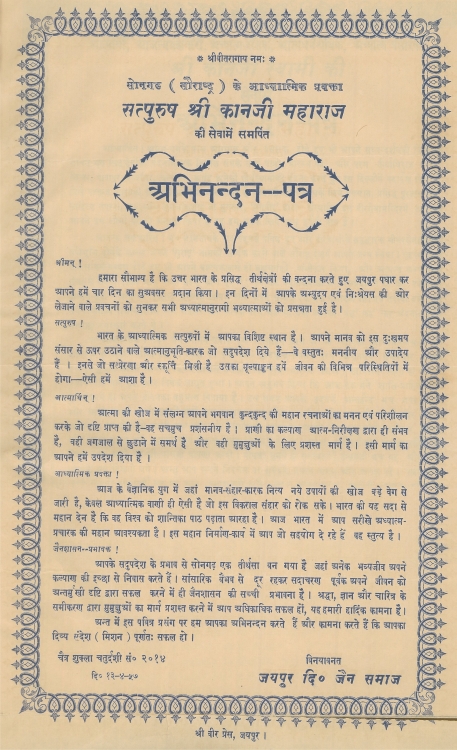 ❉ श्रीवीतरागाय नमः ❉
सोनगढ ( सौराष्ट्र ) के आध्यात्मिक प्रवक्ता
सत्पुरुष श्री कानजी महाराज
की सेवामें समर्पित
अभिनन्दन--पत्र
श्रीमन् !
हमारा सौभाग्य है कि उत्तर भारत के प्रसिद्ध तीर्थक्षेत्रों की वन्दना करते हुए जयपुर पधार कर
आपने हमें चार दिन का सुअवसर प्रदान किया । इन दिनों में आपके अभ्युदय एवं निःश्रेयस की ओर
लेजाने वाले प्रवचनों को सुनकर सभी अध्यात्मानुरागी भव्यात्माओं को प्रसन्नता हुई है ।
सत्पुरुष !
भारत के आध्यात्मिक सत्पुरुषों में आपका विशिष्ट स्थान है । आपने मानव को इस दुःखमय
संसार से ऊपर उठाने वाले आत्मानुभूति-कारक जो सदुपदेश दिये हैं—वे वस्तुतः मननीय और उपादेय
हैं । इनसे जो सत्प्रेरणा और स्फूर्ति मिली है उसका हमें जीवन की विभिन्न परिस्थितियों में
होगा—ऐसी हमें आशा है ।
आत्मार्थिन् !
आत्मा की खोज में संलग्न आपने भगवान कुन्दकुन्द की महान रचनाओं का मनन एवं परिशीलन
करके जो दृष्टि प्राप्त की है—वह सचमुच प्रशंसनीय है । प्राणी का कल्याण आत्म-निरीक्षण द्वारा ही संभव
है, वही जगजाल से छुडाने में समर्थ है और वही मुमुक्षुओं के लिए प्रशस्त मार्ग है । इसी मार्ग का
आपने हमें उपदेश दिया है ।
आध्यात्मिक प्रवक्ता !
आज के वैज्ञानिक युग में जहां मानव-संहार-कारक नित्य नये उपायों की खोज बड़े वेग से
जारी है, केवल आध्यात्मिक वाणी ही ऐसी है जो इस विकराल संहार को रोक सके । भारत की यह सदा से
महान देन है कि वह विश्व को शान्तिका पाठ पढ़ाता आरहा है । आज भारत में आप सरीखे अध्यात्म-
प्रचारक की महान आवश्यकता है । इस महान निर्माण-कार्य में आप जो सहयोग दे रहे हैं वह स्तुत्य है ।
जैनशासन-प्रभावक !
आपके सदुपदेश के प्रभाव से सोनगढ़ एक तीर्थसा बन गया है जहां अनेक भव्यजीव अपने
कल्याण की इच्छा से निवास करते हैं । सांसारिक वैभव से दूर रहकर सदाचरण पूर्वक अपने जीवन को
अन्तर्मुखी दृष्टि द्वारा सफल करने में ही जैनशासन की सच्ची प्रभावना है । श्रद्धा, ज्ञान और चारित्र के
समीकरण द्वारा मुमुक्षुओं का मार्ग प्रशस्त करने में आप अधिकाधिक सफल हों, यह हमारी हार्दिक कामना है ।
अन्त में इस पवित्र प्रसंग पर हम आपका अभिनन्दन करते हैं और कामना करते हैं कि आपका
दिव्य संदेश ( मिशन ) पूर्णतः सफल हो ।
चैत्र शुक्ला चतुर्दशी सं० २०१४
दि० १३-४-५७
विनयावनत
जयपुर दि० जैन समाज
श्री वीर प्रेस, जयपुर ।